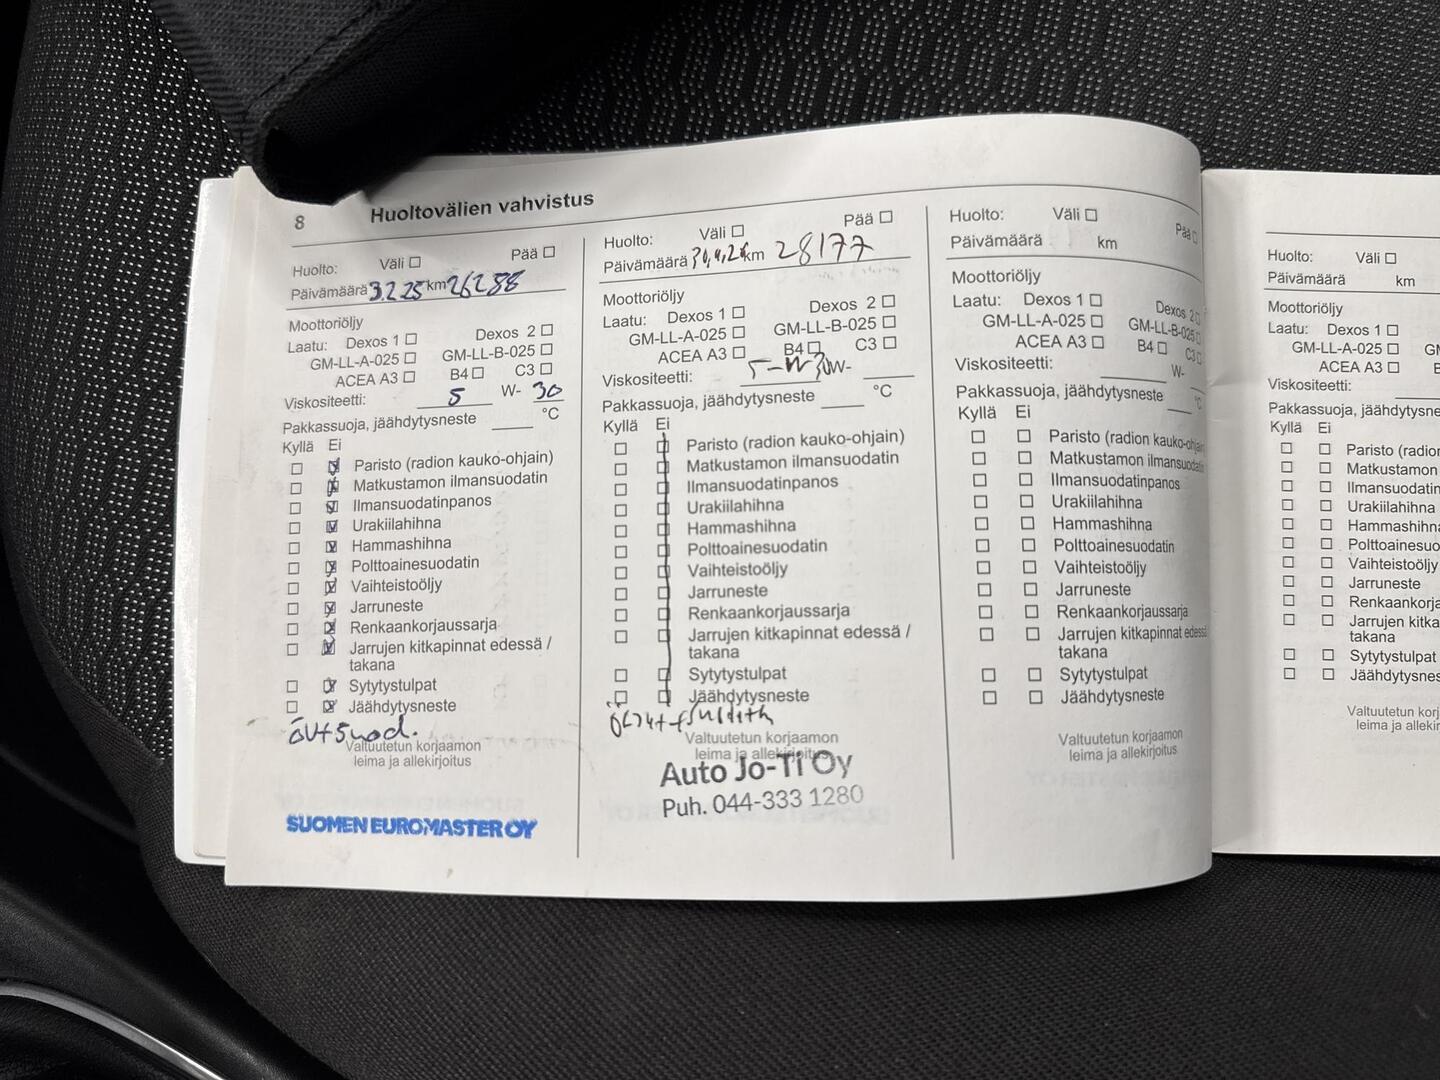 8 Huoltovälien vahvistus
Huolto: Väli ☐ Pää ☐
Päivämäärä 3.2.25 km 26288
Moottoriöljy
Laatu: Dexos 1 ☐ Dexos 2 ☐
GM-LL-A-025 ☐ GM-LL-B-025 ☐
ACEA A3 ☐ B4 ☐ C3 ☐
Viskositeetti: 5 W- 30
Pakkassuoja, jäähdytysneste ____ °C
Kyllä Ei
Paristo (radion kauko-ohjain)
Matkustamon ilmansuodatin
Ilmansuodatinpanos
Urakiilahihna
Hammashihna
Polttoainesuodatin
Vaihteistoöljy
Jarruneste
Renkaankorjaussarja
Jarrujen kitkapinnat edessä /
takana
Sytytystulpat
Jäähdytysneste
Valtuutetun korjaamon
leima ja allekirjoitus
SUOMEN EUROMASTER OY
Huolto: Väli ☐ Pää ☐
Päivämäärä km 28177
Moottoriöljy
Laatu: Dexos 1 ☐ Dexos 2 ☐
GM-LL-A-025 ☐ GM-LL-B-025 ☐
ACEA A3 ☐ B4 ☐ C3 ☐
Viskositeetti: 5-W30 W-
Pakkassuoja, jäähdytysneste ____ °C
Kyllä Ei
Paristo (radion kauko-ohjain)
Matkustamon ilmansuodatin
Ilmansuodatinpanos
Urakiilahihna
Hammashihna
Polttoainesuodatin
Vaihteistoöljy
Jarruneste
Renkaankorjaussarja
Jarrujen kitkapinnat edessä /
takana
Sytytystulpat
Jäähdytysneste
Valtuutetun korjaamon
leima ja allekirjoitus
Auto Jo-Ti Oy
Puh. 044-333 1280
Huolto: Väli ☐ Pää ☐
Päivämäärä km
Moottoriöljy
Laatu: Dexos 1 ☐ Dexos 2 ☐
GM-LL-A-025 ☐ GM-LL-B-025 ☐
ACEA A3 ☐ B4 ☐ C3 ☐
Viskositeetti: ____ W-
Pakkassuoja, jäähdytysneste ____ °C
Kyllä Ei
Paristo (radion kauko-ohjain)
Matkustamon ilmansuodatin
Ilmansuodatinpanos
Urakiilahihna
Hammashihna
Polttoainesuodatin
Vaihteistoöljy
Jarruneste
Renkaankorjaussarja
Jarrujen kitkapinnat edessä /
takana
Sytytystulpat
Jäähdytysneste
Valtuutetun korjaamon
leima ja allekirjoitus
Huolto: Väli ☐
Päivämäärä km
Moottoriöljy
Laatu: Dexos 1 ☐
GM-LL-A-025 ☐
ACEA A3 ☐
Viskositeetti:
Pakkassuoja,
Kyllä Ei
Paristo
Matkustamon
Urakiilahihna
Vaihteistoöljy
Jarruneste
Jarrujen
takana
Sytytystulpat
Valtuutetun
leima ja allekirjoitus